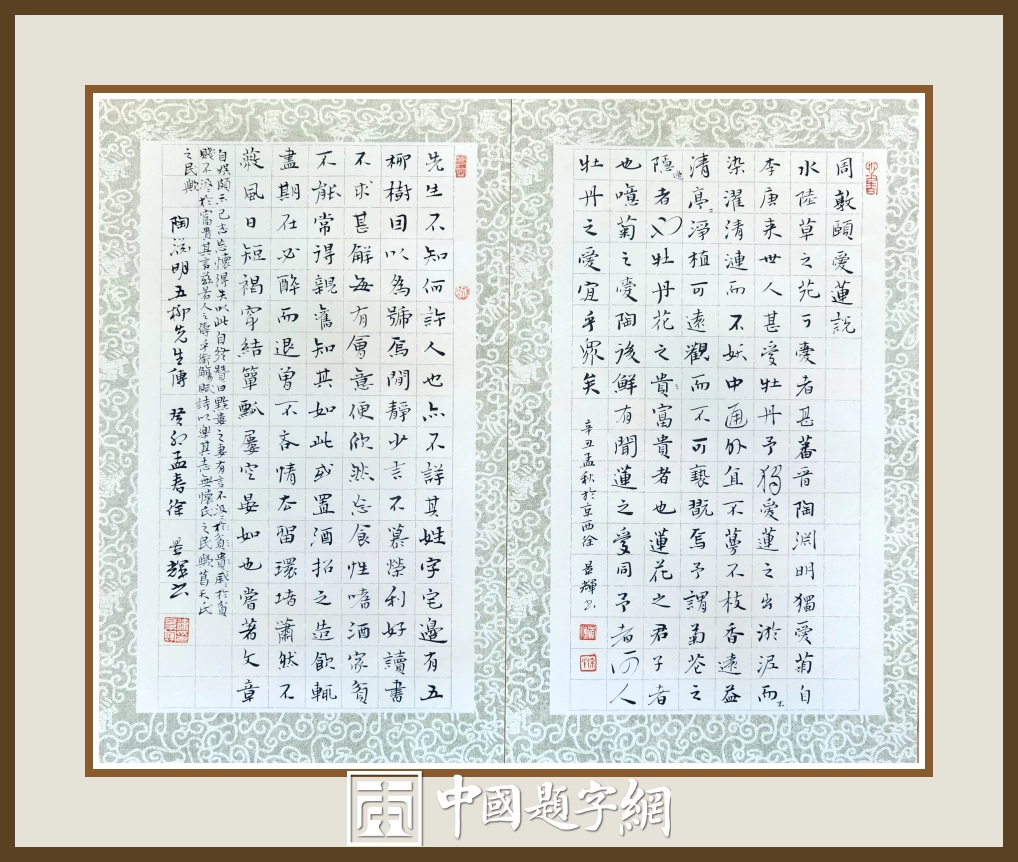 周敦頤愛蓮說
水陸草之花可愛者甚蕃晉陶淵明獨愛菊自
李唐来世人甚愛牡丹予獨愛蓮之出淤泥而不
染濯清漣而不妖中通外直不蔓不枝香遠益
清亭亭淨植可遠觀而不可褻翫焉予謂菊花之
隱逸者也牡丹花之貴富貴者也蓮花之君子者
也噫菊之愛陶後鮮有聞蓮之愛同予者何人
牡丹之愛宜乎眾矣
辛丑孟秋於京西徐景輝书
先生不知何許人也亦不詳其姓字宅邊有五
柳樹因以為號焉閒靜少言不慕榮利好讀書
不求甚解每有會意便欣然忘食性嗜酒家貧
不能常得親舊知其如此或置酒招之造飲輒
盡期在必醉而退曾不吝情去留環堵蕭然不
蔽風日短褐穿結簞瓢屢空晏如也嘗著文章
自娛頗示己志忘懷得失以此自終贊曰黔婁之妻有言不汲於貧貴戚戚於貧
賤不汲於富貴其言茲若人之儔乎銜觴賦詩以樂其志無懷氏之民與葛天氏
之民與
陶淵明五柳先生傳 癸卯孟春徐景輝书
中國題字網